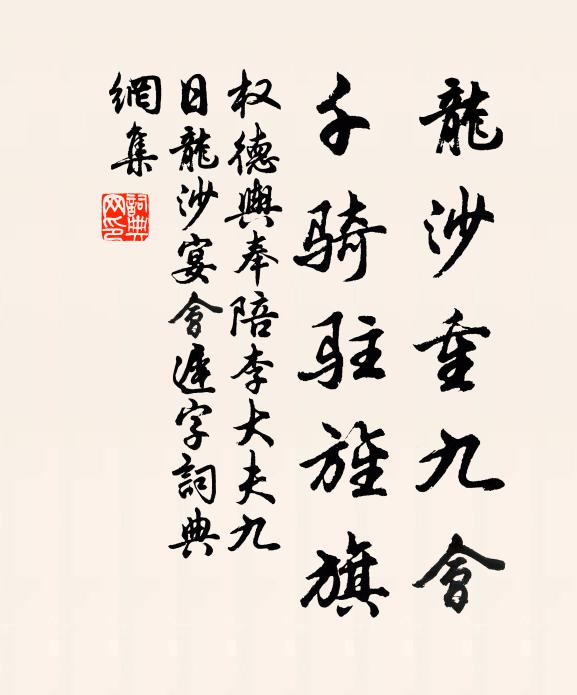 龍沙重九會
千骑驻旌旗
权德輿奉陪李大夫九
日龍沙宴會遲字詞典
網集
詞典
网印